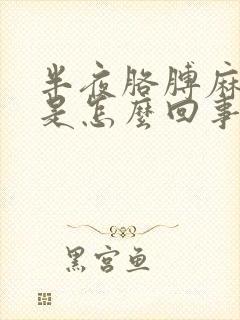 半夜胳膊麻
是怎麼回事
黑宮魚